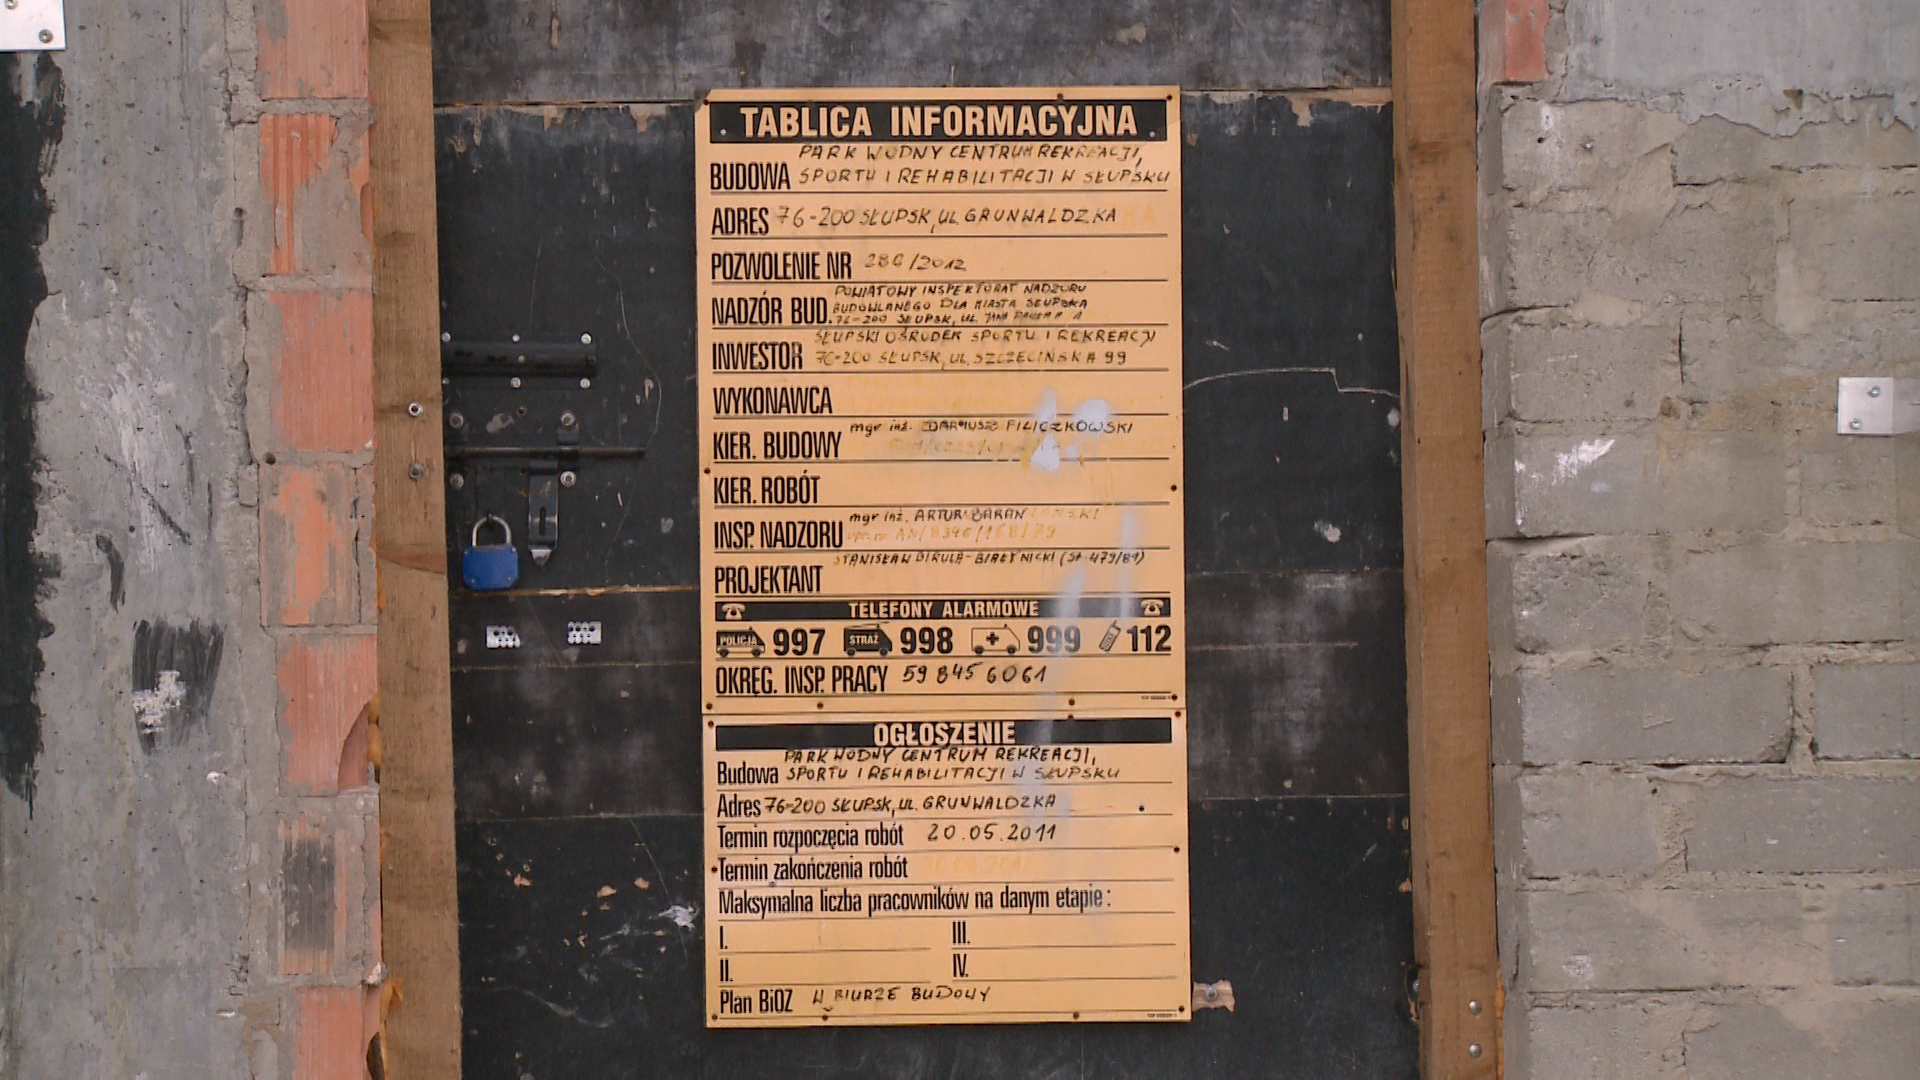 TABLICA INFORMACYJNA
PARK WODNY CENTRUM REKREACJI,
BUDOWA SPORTU I REHABILITACJI W SŁUPSKU
ADRES 76-200 SŁUPSK, UL. GRUNWALDZKA
POZWOLENIE NR /2012
POWIATOWY INSPEKTORAT NADZORU
NADZÓR BUD. BUDOWLANEGO DLA MIASTA SŁUPSKA
76-200 SŁUPSK, UL. JANA PAWŁA II
SŁUPSKI OŚRODEK SPORTU I REKREACJI
INWESTOR 76-200 SŁUPSK, UL. SZCZECIŃSKA 99
WYKONAWCA
mgr inż. DARIUSZ FILICZKOWSKI
KIER. BUDOWY
KIER. ROBÓT
mgr inż. ARTUR
INSP. NADZORU
STANISŁAW BIRULA-BIAŁYNICKI (SŁ-479/81)
PROJEKTANT
TELEFONY ALARMOWE
POLICJA 997 STRAŻ 998 999 112
OKRĘG. INSP. PRACY 59 845 6061
OGŁOSZENIE
PARK WODNY CENTRUM REKREACJI,
Budowa SPORTU I REHABILITACJI W SŁUPSKU
Adres 76-200 SŁUPSK, UL. GRUNWALDZKA
Termin rozpoczęcia robót 20.05.2011
Termin zakończenia robót
Maksymalna liczba pracowników na danym etapie:
I. III.
II. IV.
Plan BiOZ W BIURZE BUDOWY